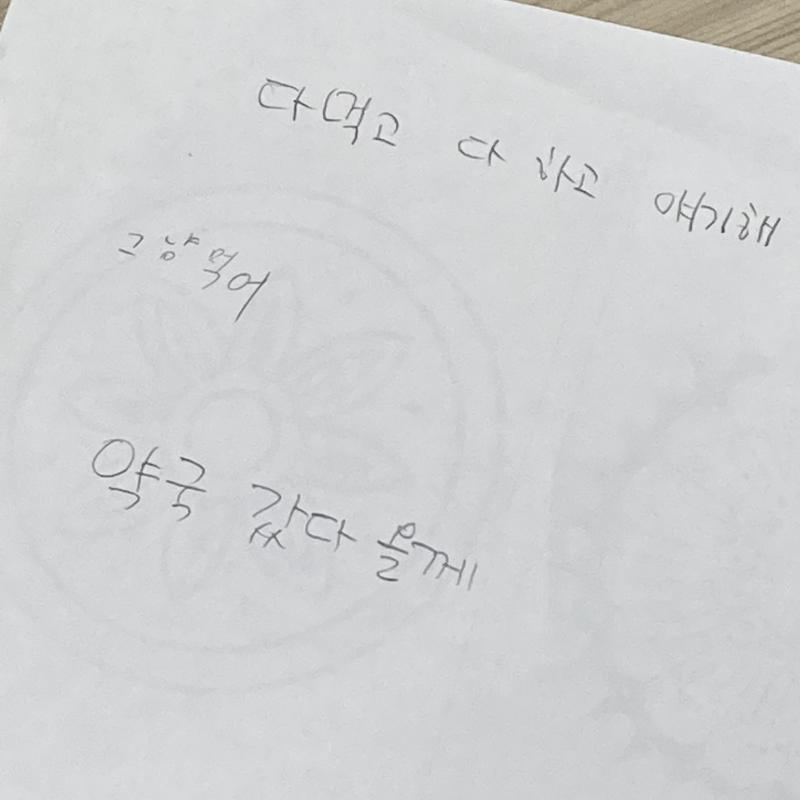 다먹고 다 하고 얘기해
그냥 먹어
약국 갔다 올게